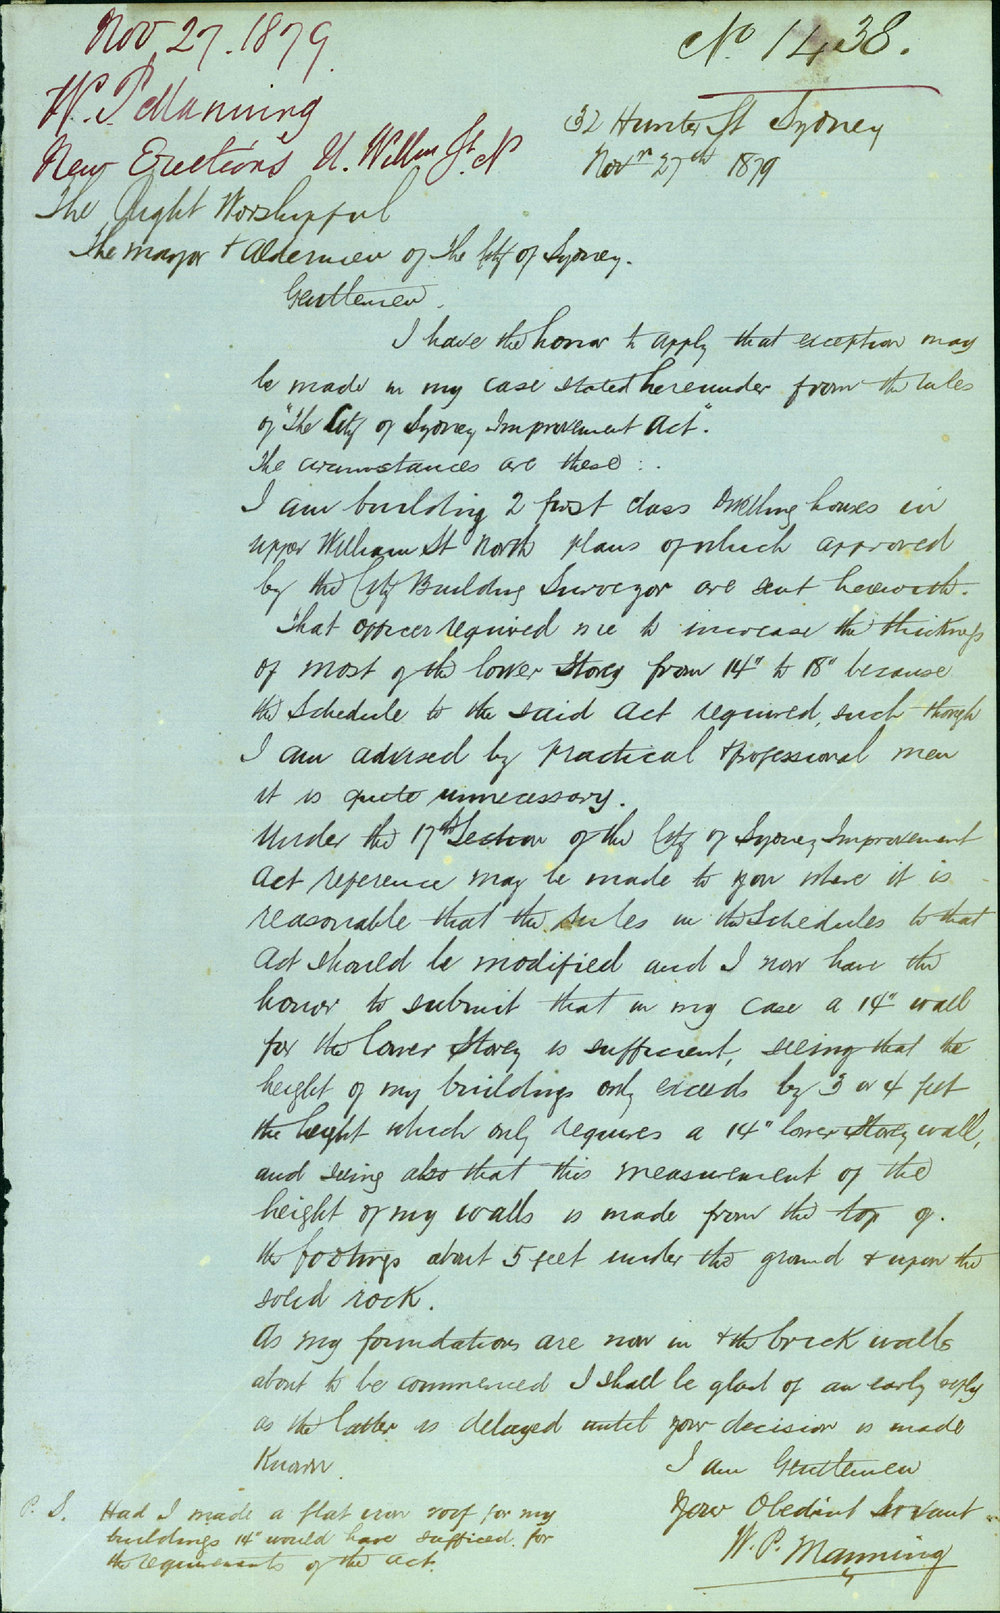 Nov 27. 1879
No 1438.
W. P. Manning
New Erections U. William St. N
32 Hunter St Sydney
Novr 27th 1879
The Right Worshipful
The Mayor & Aldermen of the City of Sydney.
Gentlemen.
I have the honor to apply that exception may
be made in my case stated hereunder from the rules
of "The City of Sydney Improvement Act".
The circumstances are these :.
I am building 2 first class dwelling houses in
upper William St North plans of which approved
by the City Building Surveyor are sent herewith.
That officer required me to increase the thickness
of most of the lower Storey from 14" to 18" because
the Schedule to the said Act required, such though
I am advised by practical & professional men
it is quite unnecessary.
Under the 17th Section of the City of Sydney Improvement
Act reference may be made to you where it is
reasonable that the rules in the Schedules to that
Act should be modified and I now have the
honor to submit that in my case a 14" wall
for the lower Storey is sufficient, seeing that the
height of my buildings only exceeds by 3 or 4 feet
the height which only requires a 14" lower Storey wall,
and seeing also that this measurement of the
height of my walls is made from the top of.
the footings about 5 feet under the ground & upon the
solid rock.
As my foundations are now in & the brick walls
about to be commenced I shall be glad of an early reply
as the latter is delayed until your decision is made
Known.
I am Gentlemen
Your Obedient Servant
W. P. Manning
P. S. Had I made a flat iron roof for my
buildings 14" would have sufficed for
the requirements of the Act.